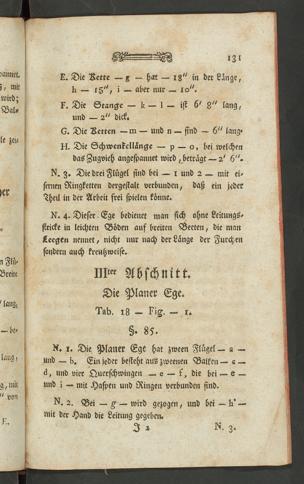 131
E. Die Kette — g — hat — 18" in der Länge,
h — 15", i — aber nur — 10".
F. Die Stange — k — l — ist 6' 8" lang,
und — 2" dick.
G. Die Ketten — m — und n — sind — 6" lang.
H. Die Schwenkellänge — p — o, bei welchen
das Zugvieh angespannet wird, beträgt — 2' 6".
N. 3. Die drei Flügel sind bei — 1 und 2 — mit ei-
sernen Ringketten dergestalt verbunden, daß ein jeder
Theil in der Arbeit frei spielen könne.
N. 4. Dieser Ege bedienet man sich ohne Leitungs-
stricke in leichten Böden auf breiten Beeten, die man
Leegten nennet, nicht nur nach der Länge der Furchen
sondern auch kreuzweise.
IIIter Abschnitt.
Die Planer Ege.
Tab. 18 — Fig. — 1.
§. 85.
N. 1. Die Planer Ege hat zween Flügel — a —
und — b. Ein jeder besteht aus zweenen Balken — c —
d, und vier Querschwingen — e — f, die bei — e —
und i — mit Haspen und Ringen verbunden sind.
N. 2. Bei — g — wird gezogen, und bei — h —
mit der Hand die Leitung gegeben.
J 2 N. 3.